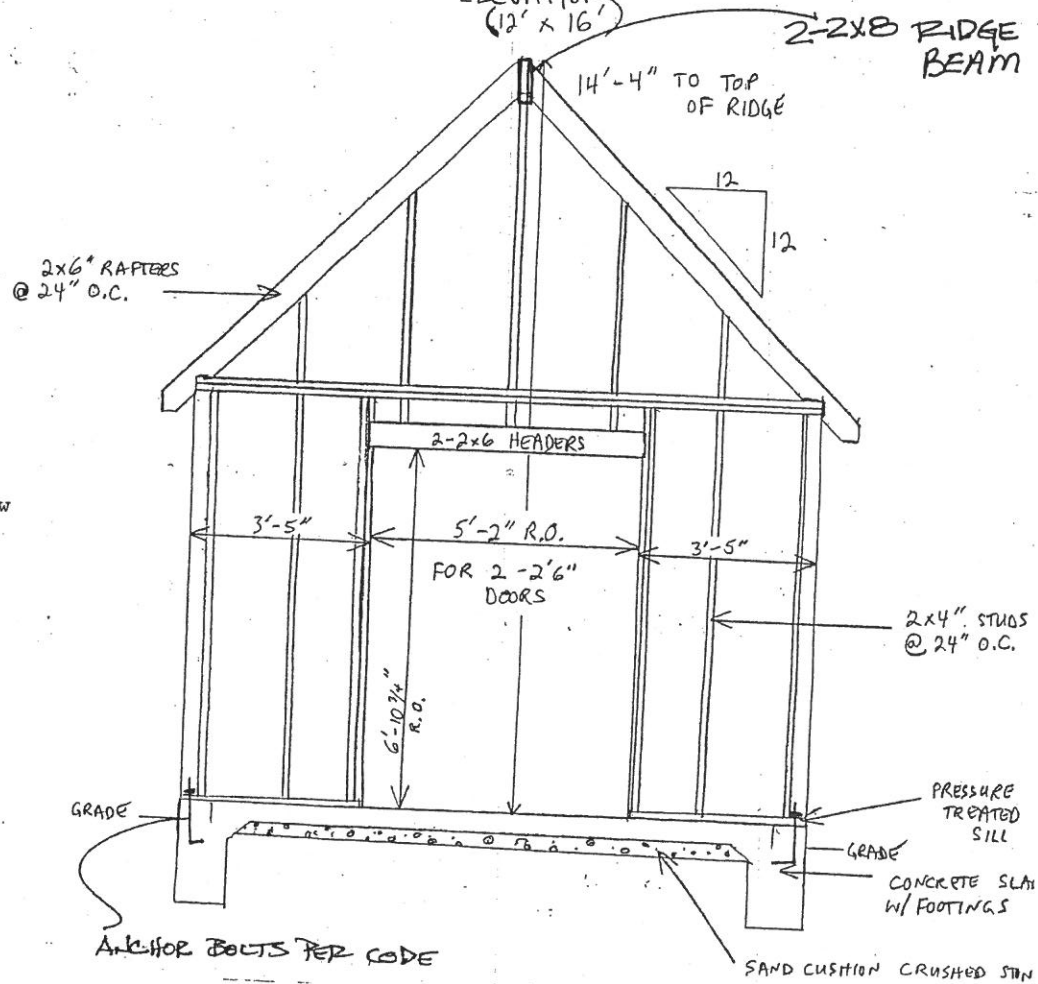 (12' x 16')
2-2X8 RIDGE
BEAM
14'-4" TO TOP
OF RIDGE
12
12
2x6" RAFTERS
@ 24" O.C.
2-2x6 HEADERS
3'-5"
5'-2" R.O.
3'-5"
FOR 2 -2'6"
DOORS
2x4" STUDS
@ 24" O.C.
6'-10 3/4"
R.O.
GRADE
PRESSURE
TREATED
SILL
GRADE
CONCRETE SLA
W/ FOOTINGS
ANCHOR BOLTS PER CODE
SAND CUSHION CRUSHED STON